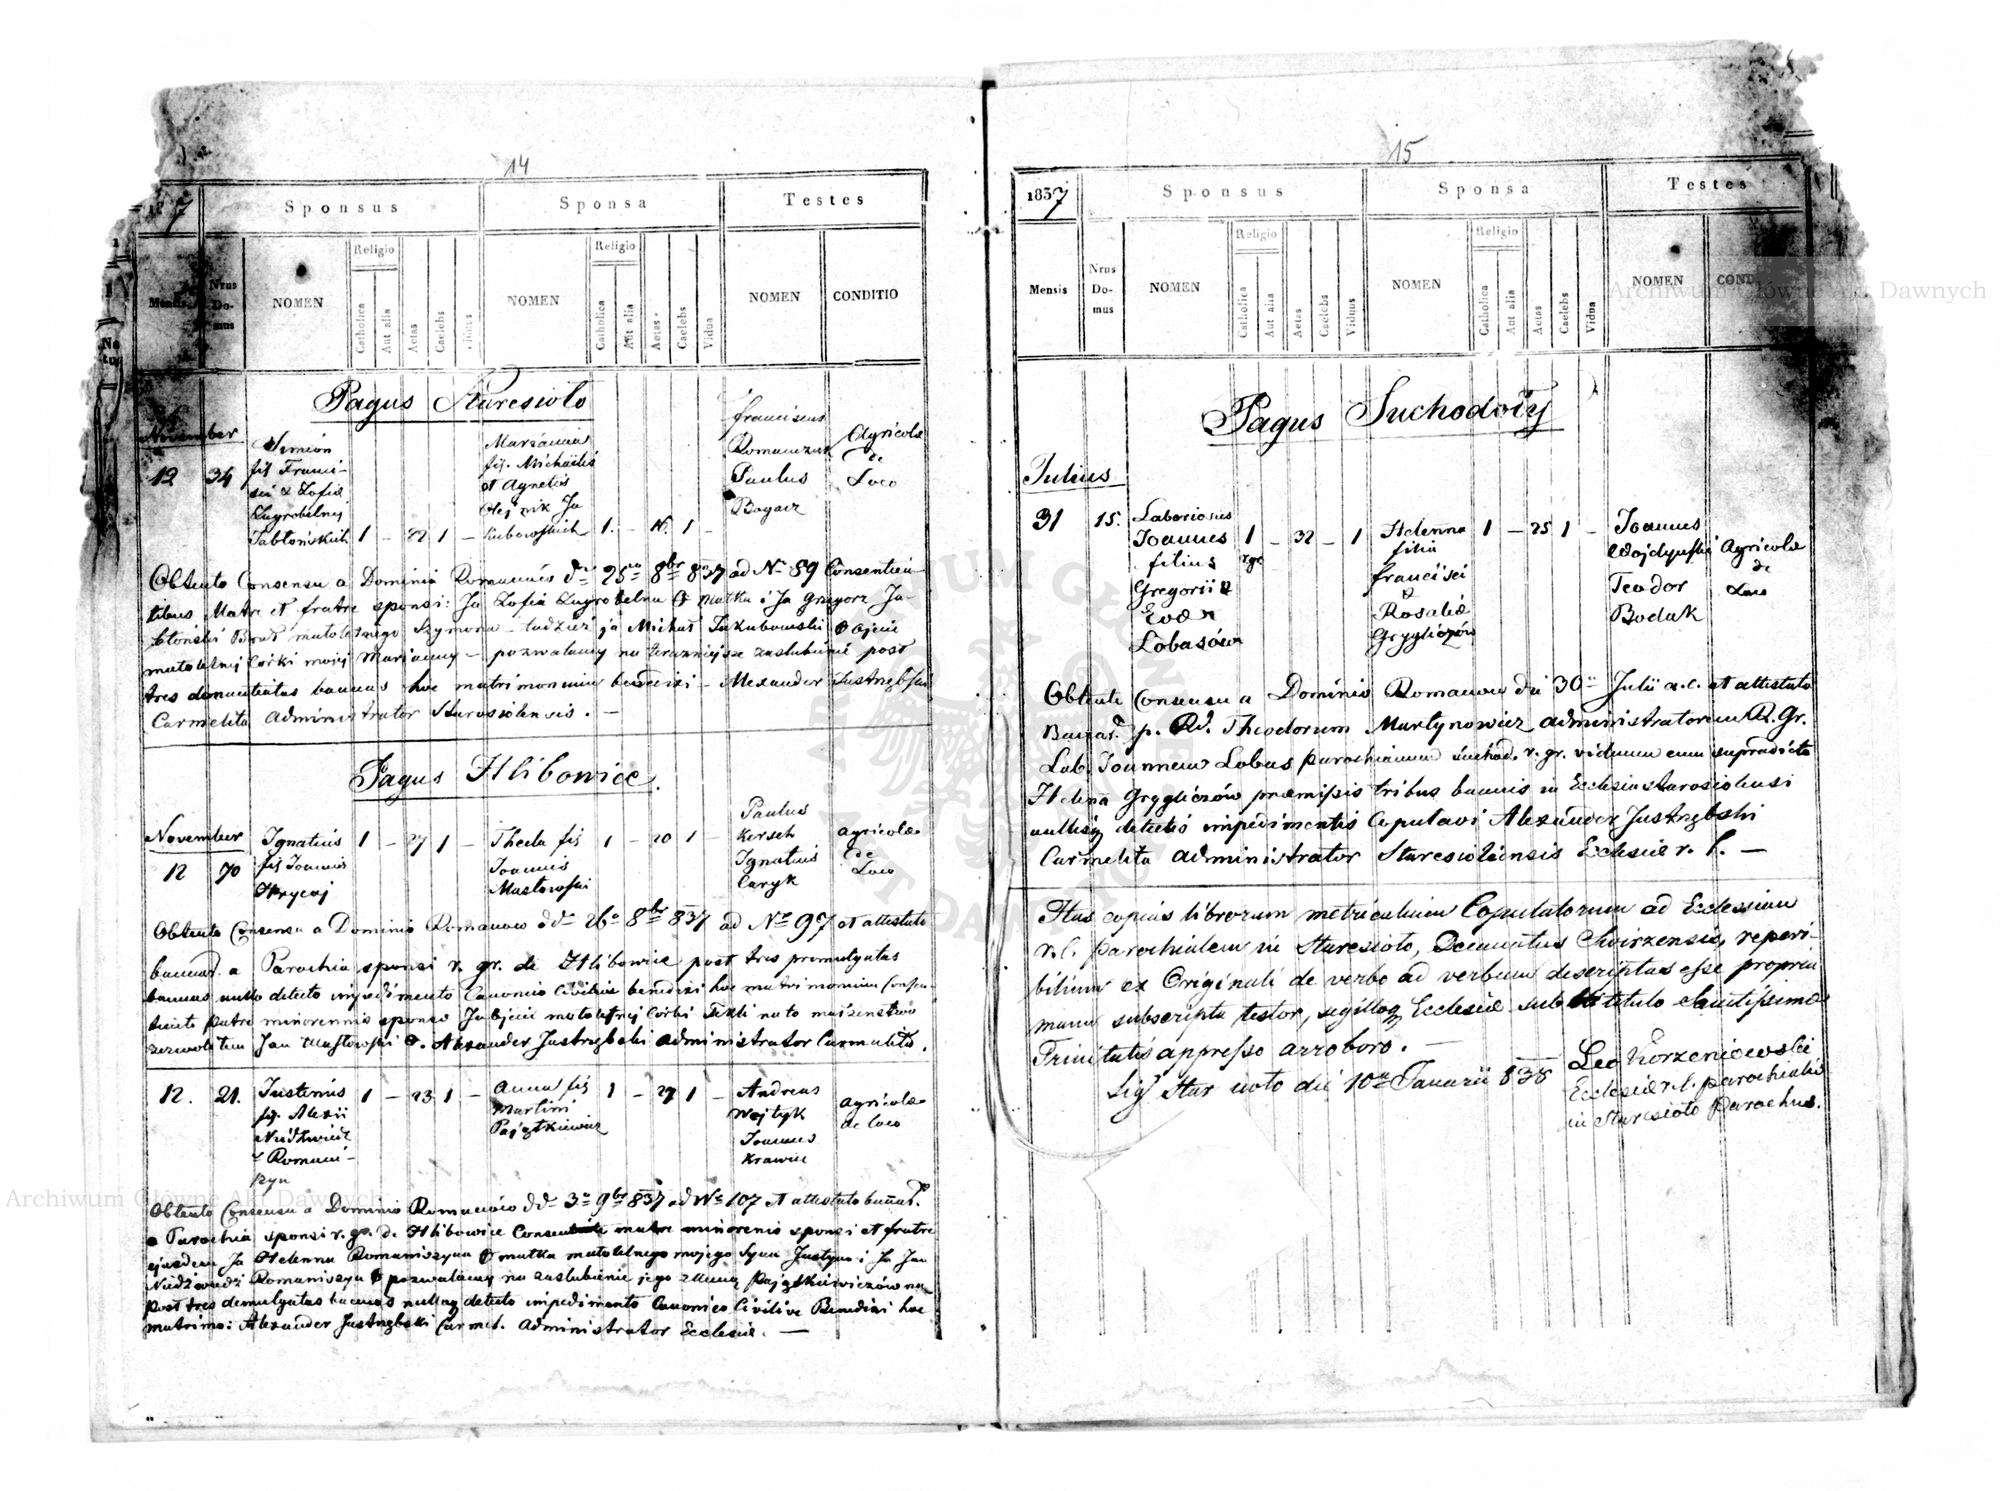 14
1837
Sponsus
Sponsa
Testes
Mensis
Nrus Do- mus
NOMEN
Religio
Catholica
Aut alia
Aetas
Caelebs
Viduus
NOMEN
Religio
Catholica
Aut alia
Aetas
Caelebs
Vidua
NOMEN
CONDITIO
Pagus Staresioło
November
12 34
Simeon
fil Franci-
sci & Zofia
Zagrobelny
Jabłońskich 1 – 22 1 –
Marianna
fil. Michaelis
et Agnetis
Olejnik Ja
kubowskich 1. – 18. 1 –
Franciscus
Romanczuk
Paulus
Bogacz
Agricolae
de
Loco
Obtento Consensu a Dominio Romanow dto 25a 8br 837 ad No 89 Consentien
tibus Matre et fratre sponsi: Ja Zofia Zagrobelna + matka i Ja Grzegorz Ja-
błoński Brat małoletniego Szymona – tudzież ja Michał Jakubowski + ojciec
małoletniej Córki mojej Marianny – pozwalamy na teraźniejsze zaślubienie post
tres denuntiatas bannas hoc matrimonium benedixi – Alexander Jastrzębski
Carmelita Administrator Starosiolensis. –
Pagus Hlibowice.
November
12 70
Ignatius 1 – 27 1 –
fil Joannis
Hrycaj
Thecla fil 1 – 20 1 –
Joannis
Masłowski
Paulus
Korseh
Ignatius
Caryk
agricolae
de
Loco
Obtento Consensu a Dominio Romanow ddto 26a 8br 837 ad Nr 97 et attestato
bannar. a Parochia sponsi r. gr. de Hlibowice post tres promulgatas
bannas nullo detecto impedimento Canonico Civilive benedixi hoc matrimonium Consen
tiente patre minorennis sponsae Ja ojciec małoletniej Córki Tekli na to małżeństwo
zezwoliłem Jan Masłowski +. Alexander Jastrzębski administrator Carmelita.
12. 21. Justinus 1 – 23 1 –
fil. Alexii
Niedźwiedź
v Romani-
szyn
Anna fil 1 – 27 1 –
Martini
Pajątkiewicz
Andreas
Wojtyk
Joannes
Krawiec
agricolae
de loco
Obtento Consensu a Dominio Romanow ddto 3a 9br 837 ad No 107 et attestato bannar.
a Parochia sponsi r. gr. de Hlibowice Consentiente matre minorenis sponsi et fratre
ejusdem Ja Helenna Romaniszyna + matka małoletniego mojego syna Justyna i Ja Jan
Niedźwiedź Romaniszyn + pozwalamy na zaślubienie jego z Anną Pajątkiewiczówną
post tres demulgatas bannas nulloq detecto impedimento Canonico Civilive Benedixi hoc
matrimo: Alexander Jastrzębski Carmel. Administrator Ecclesiae. –
15
1837
Sponsus
Sponsa
Testes
Mensis
Nrus Do- mus
NOMEN
Religio
Catholica
Aut alia
Aetas
Caelebs
Viduus
NOMEN
Religio
Catholica
Aut alia
Aetas
Caelebs
Vidua
NOMEN
COND
Pagus Suchodoły
Julius
31 15.
Laboriosus
Joannes 1 – 32 – 1
filius rgr
Gregorii &
Evae
Lobasów
Helenna 1 – 25 1 –
filia
francisci
&
Rosaliae
Grygliczów
Joannes
Wojdyński
Teodor
Boduk
Agricolae
de
Loco
Obtento Consensu a Dominio Romanow dti 30a Julii a.c. et attestato
Bannar. p. Rd. Theodorum Martynowicz administratorem R. Gr.
Lab. Joannem Lobas parochianum suchod. r. gr. viduum cum supradicta
Helena Grygliczów praemissis tribus bannis in Ecclesia Starosiolensi
nullisq detectis impedimentis Copulavi Alexander Jastrzębski
Carmelita administrator Staresiolensis Ecclesiae r. l. –
Has copias librorum metricalium Copulatorum ad Ecclesiam
r.l. parochialem in Staresioło, Decanatus Swirzensis, reperi-
bilium ex Originali de verbo ad verbum descriptas esse propria
manu subscripta testor, sigilloq Ecclesiae sub titulo Sanctissimae
Trinitatis appresso arroboro. –
Sig Staresioło die 10a Januarii 838
Leo Korzeniowski
Ecclesiae r.l. parochialis
in Staresioło Parochus.
Archiwum Główne Akt Dawnych
Archiwum Główne Akt Dawnych